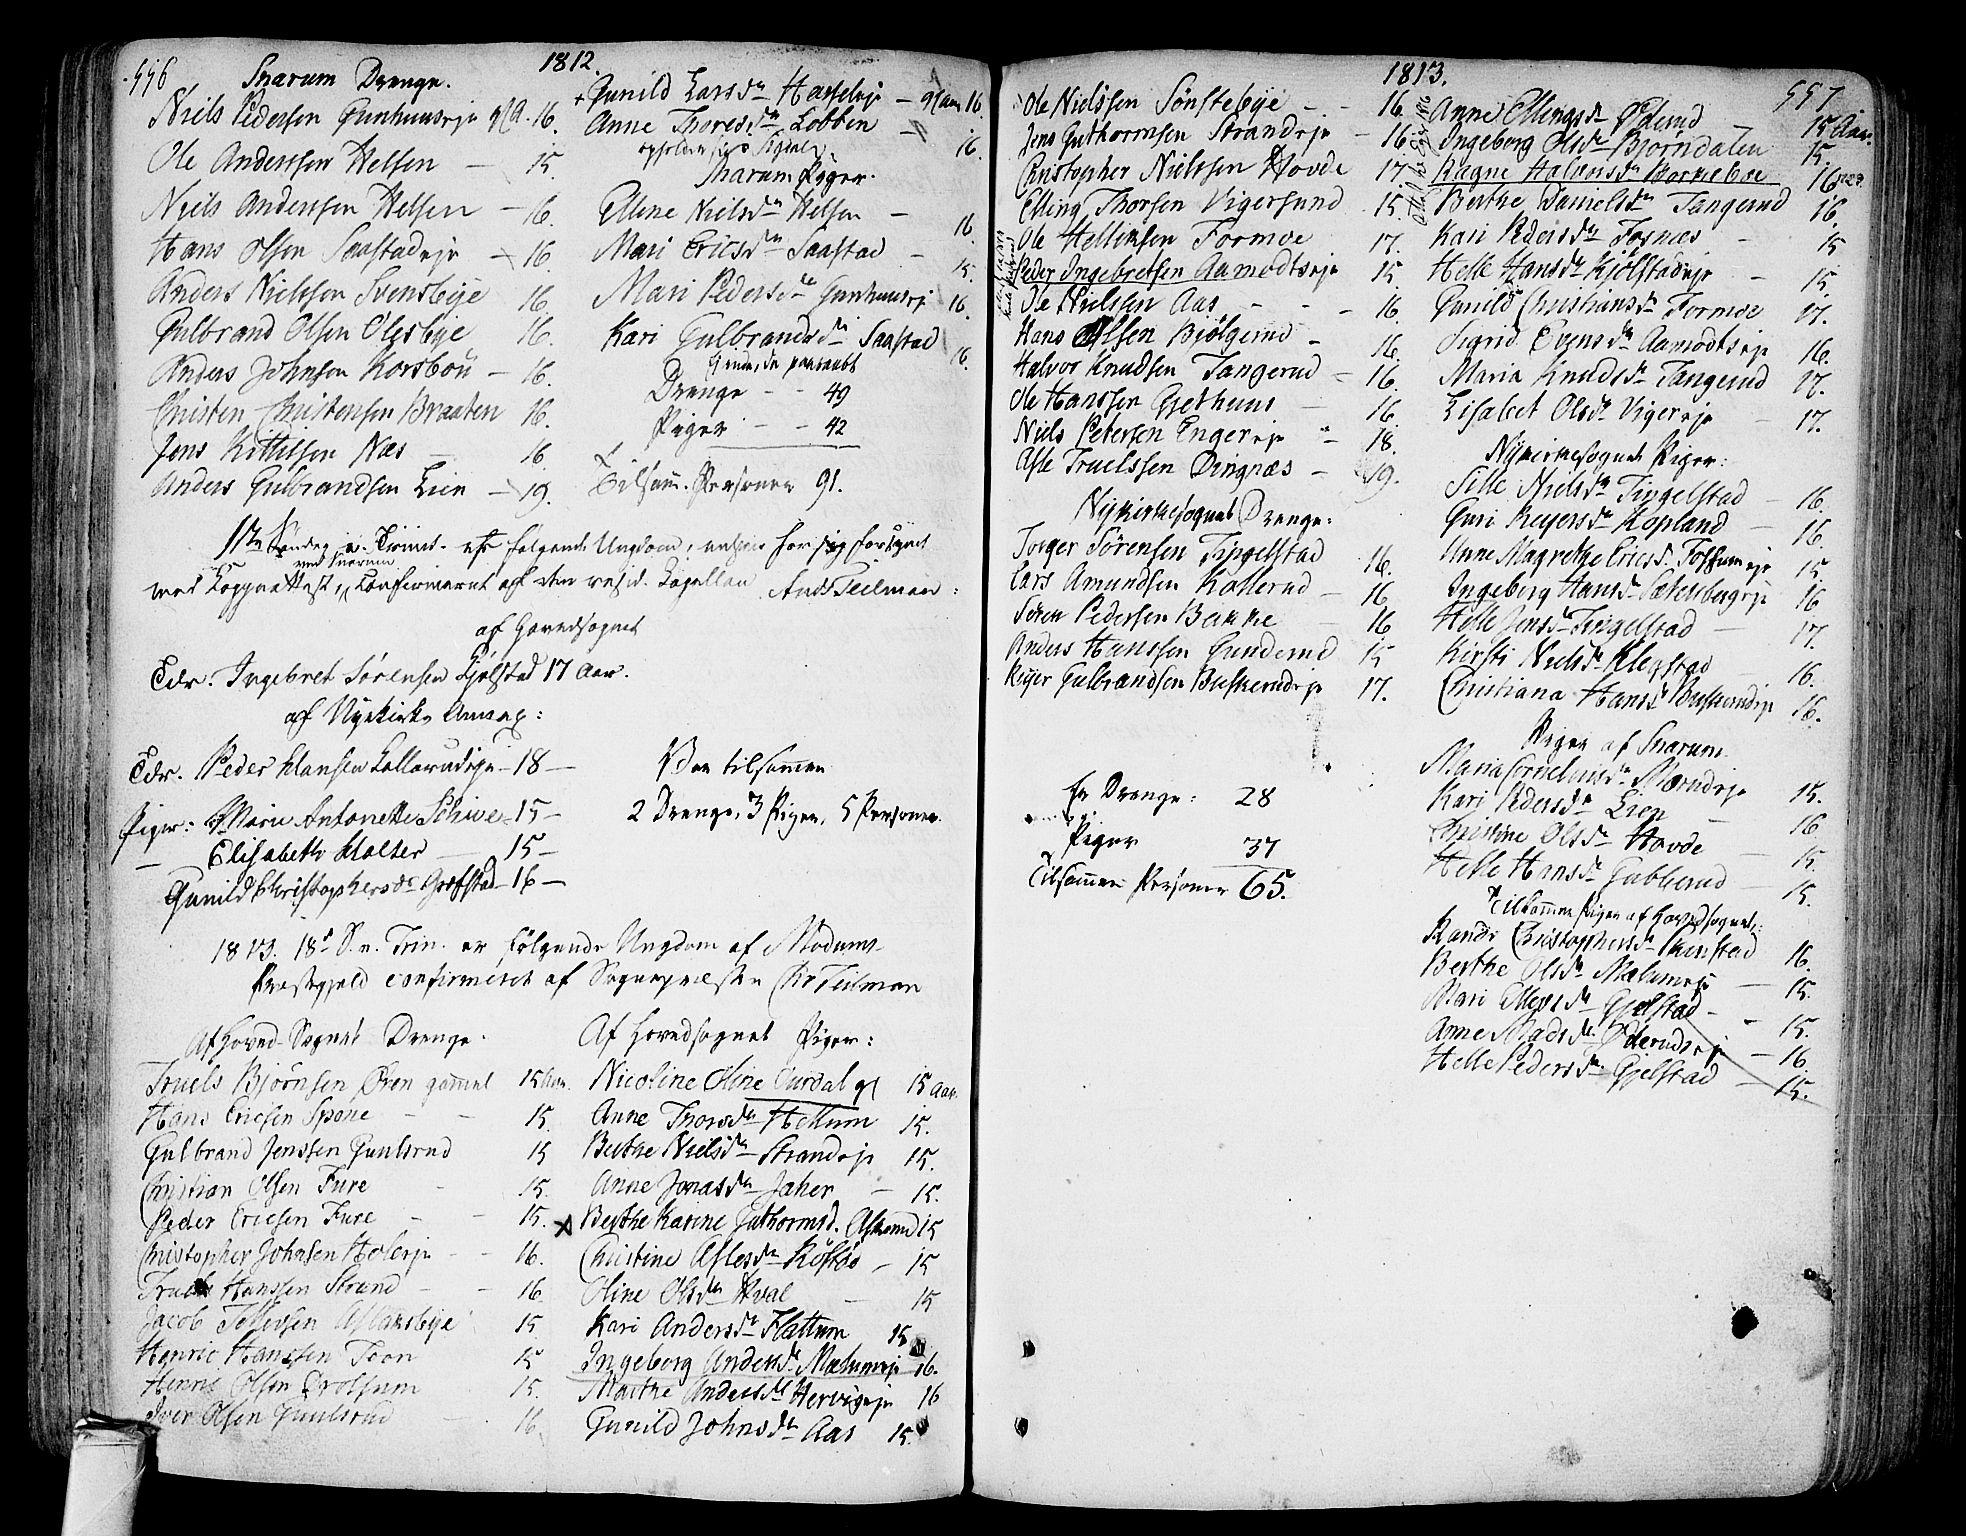 556
1812.
Snarum Drenge.
Niels Pedersen Gunhuuseje gl A. 16.
Ole Anderssen Helsen — 15.
Niels Anderssen Helsen — 16.
Hans Olsen Saastadeje — 16.
Anders Nielsen Svensbye 16.
Gulbrand Olsen Olesbye 16.
Anders Johnsen Korsbøn — 16.
Christen Christensen Braaten 16.
Jens Kittelsen Næs 16.
Anders Gulbrandsen Lien — 19.
+ Gunild Larsdr Hasseleje — gl Aar 16.
Anne Thoresdr Lobben — 16.
opholder sig i Sigdal
Snarum Piger.
Ellene Nielsdr Helsen — 16.
Mari Ericsdr Saastad — 15.
Mari Pedersdr Gunhuusej 16.
Kari Gulbrandsdr Saastad 16.
Drenge — 49
Piger — 42
Tilsam. Personer 91.
med Snarum
med Koppeattest, Confirmeret af den resid. Capellan Ands Teilman:
af Hovedsognet
Edv. Ingebret Sørensen Kjølstad 17 Aar.
af Nykirke Annex:
Edv. Peder Hansen Kallerudeje — 18 —
Piger: Marie Antonette Schive — 15 —
— Elisabeth Holter — 15 —
Gunild Christophersdr Grøfstad — 16 —
Var tilsammen
2 Drenge, 3 Piger, 5 Personer.
1813. 18de S. e. Trin. er følgende Ungdom af Modums
Præstegjeld confirmeret af Sognepræsten Chr Teilman
Af Hoved-Sognet Drenge.
Truels Bjørnsen Øren gammel 15 Aar.
Hans Ericsen Spone — 15.
Gulbrand Jenssen Guulsrud 15
Christian Olsen Fure — 15.
Peder Ericsen Fure — 15.
Christopher Johnsen Holeeje — 16.
Truels Hanssen Strand — 16.
Jacob Tollevsen Aslaksbye 15.
Henric Hanssen Toon 15
Henric Olsen Drolsum 15.
Iver Olsen Guulsrud — 16.
Af Hovedsognet Piger:
Nicoline Oline Aurdal gl 15 Aar.
Anne Thorsdr Hellum 15.
Berthe Nielsdr Strandeje 15.
Anne Jonasdr Jaher — 15.
x Berthe Karine Guthormsd. Askerud 15
Christine Aslesdr Kostøe — 15
Oline Olsdr Hval — 15
Kari Andersdr Flattum 15
Ingeborg Andersdr Mælumeje 16.
Marthe Andersdr Hervigeje 16
Gunild Johnsdr Aas 15.
1813.
557
Ole Nielssen Sønstebye — 16.
Jens Guthormsen Strandeje — 16
Christopher Nielssen Hovde 17
Elling Thorsen Vigersund 15
Ole Helliksen Formoe 17.
Peder Ingebretsen Aamodtseje 15
Ole Nielssen Aas — 16.
Hans Olsen Bjølgerud — 16.
Halvor Knudsen Tangerud — 16.
Ole Hanssen Gjethuus — 16
Niels Petersen Engereje — 18.
Asle Truelssen Dingnæs — 19.
Nykirkesognet Drenge:
Torger Sørensen Tingelstad 16.
Lars Amundsen Kallerud — 16
Søren Pedersen Bakke 16
Anders Hanssen Gunderud 15
Reyer Gulbrandsen Buskerudeje 17.
er Drenge: 28
Piger 37
Tilsammen Personer 65.
Anne Ellingsdr Øderud — 15 Aar.
Ingeborg Olsdr Bjorndalen 15.
Ragne Halvorsdr Borkebøe 16
Berthe Danielsdr Tangerud 16.
Kari Pedersdr Fosnæs — 15
Helle Hansdr Kjølstadeje — 15
Gunild Christiansdr Formoe 17.
Sigrid Evensdr Aamodtseje 16.
Maria Knudsdr Tangerud 17.
Lisabet Olsdr Vigereje — 17.
Nykirkesognet Piger:
Sille Nielsdr Tingelstad — 16.
Guri Reyersdr Kopland — 16
Anne Magrethe Ericsd. Fossumeje 15
Ingeborg Hansdr Sætersbergeje 16
Helle Jensdr Tingelstad — 17.
Kirsti Nielsdr Klegstad — 16.
Christiana Hansdr Buskerudeje 16.
Piger af Snarum
Maria Corneliusdr Mærudeje 15.
Kari Pedersdr Lien — 16
Christine Olsdr Hovde — 15.
Helle Hansdr Gubberud — 15.
Tilkomme Piger af Hovedsognet:
Randi Christophersdr Kunstad 16.
Berthe Olsdr Mælumeje — 15.
Mari Ellevsdr Gjelstad — 15.
Anne Madsdr Øderudeje — 16.
Helle Pedersdr Gjelstad — 15.